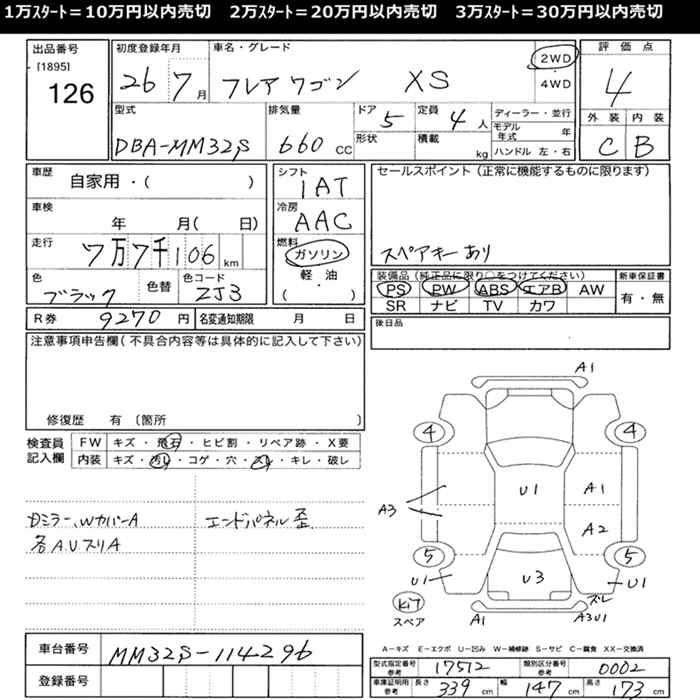 1万ｽﾀｰﾄ＝10万円以内売切　2万ｽﾀｰﾄ＝20万円以内売切　3万ｽﾀｰﾄ＝30万円以内売切
出品番号
[1895]
126
初度登録年月
26 7月
車名・グレード
フレアワゴン XS
2WD
4WD
評価点
4
型式
DBA-MM32S
排気量
660 CC
ドア
5
形状
定員
4人
積載
kg
ディーラー・並行
モデル年式 年
ハンドル 左・右
外装 内装
C B
車歴
自家用・( )
車検
年 月( 日)
走行
7万7千106 km
色
ブラック
色替
色コード
ZJ3
シフト
IAT
冷房
AAC
燃料
ガソリン
軽・油
( )
セールスポイント（正常に機能するものに限ります）
スペアキーあり
装備品（純正品に限り○をつけてください）
PS PW ABS エアB AW
SR ナビ TV カワ
新車保証書
有・無
R券 9270 円 名変通知期限 月 日
後日品
注意事項申告欄(不具合内容等は具体的に記入して下さい)
修復歴 有 〔箇所 〕
検査員記入欄
FW キズ・飛石・ヒビ割・リペア跡・X要
内装 キズ・汚れ・コゲ・穴・スレ・キレ・破レ
Dミラー、WカバーA
各A.UスリA
エンドパネル歪
A1
4 4
U1 A1
A3 A2
5 5
U1 U3 U1
キ17
スペア
ズレ
A1 A3U1
A－キズ E－エクボ U－凹み W－補修跡 S－サビ C－腐食 XX－交換済
車台番号 MM32S-114296
登録番号
型式指定番号 参考 17512 類別区分番号 参考 0002
車庫証明用 参考 長さ 339 cm 幅 147 cm 高さ 173 cm